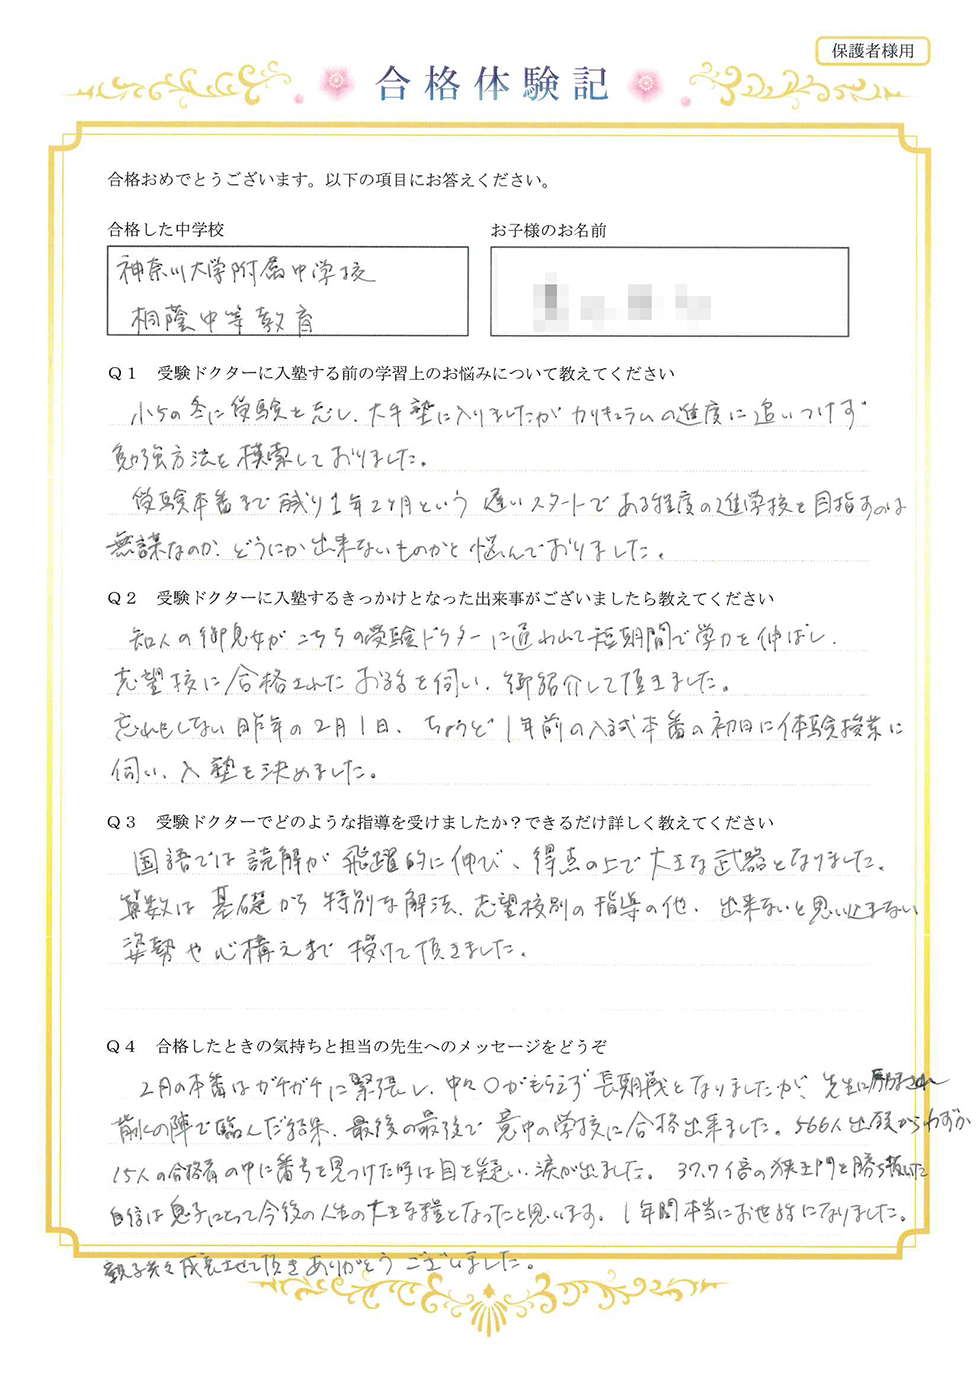 保護者様用
合格体験記
合格おめでとうございます。以下の項目にお答えください。
合格した中学校
お子様のお名前
神奈川大学附属中学校
桐蔭中等教育
Q1 受験ドクターに入塾する前の学習上のお悩みについて教えてください
小5の冬に受験を志し、大手塾に入りましたがカリキュラムの進度に追いつけず
勉強方法を模索しておりました。
受験本番まで残り1年2ヶ月という遅いスタートである程度の進学校を目指すのは
無謀なのか、どうにか出来ないものかと悩んでおりました。
Q2 受験ドクターに入塾するきっかけとなった出来事がございましたら教えてください
知人の御息女がこちらの受験ドクターに通われて短期間で学力を伸ばし、
志望校に合格されたお話を伺い、御紹介して頂きました。
忘れもしない昨年の2月1日、ちょうど1年前の入試本番の初日に体験授業に
伺い、入塾を決めました。
Q3 受験ドクターでどのような指導を受けましたか？できるだけ詳しく教えてください
国語では読解が飛躍的に伸び、得点の上で大きな武器となりました。
算数は基礎から特別な解法、志望校別の指導の他、出来ないと思い込まない
姿勢や心構えまで授けて頂きました。
Q4 合格したときの気持ちと担当の先生へのメッセージをどうぞ
2月の本番はガチガチに緊張し、中々○がもらえず長期戦となりましたが、先生に励まされ
背水の陣で臨んだ結果、最後の最後で意中の学校に合格出来ました。566人出願からわずか
15人の合格者の中に番号を見つけた時は目を疑い、涙が出ました。37.7倍の狭き門を勝ち抜いた
自信は息子にとって今後の人生の大きな糧となったと思います。1年間本当にお世話になりました。
親子共々成長させて頂きありがとうございました。